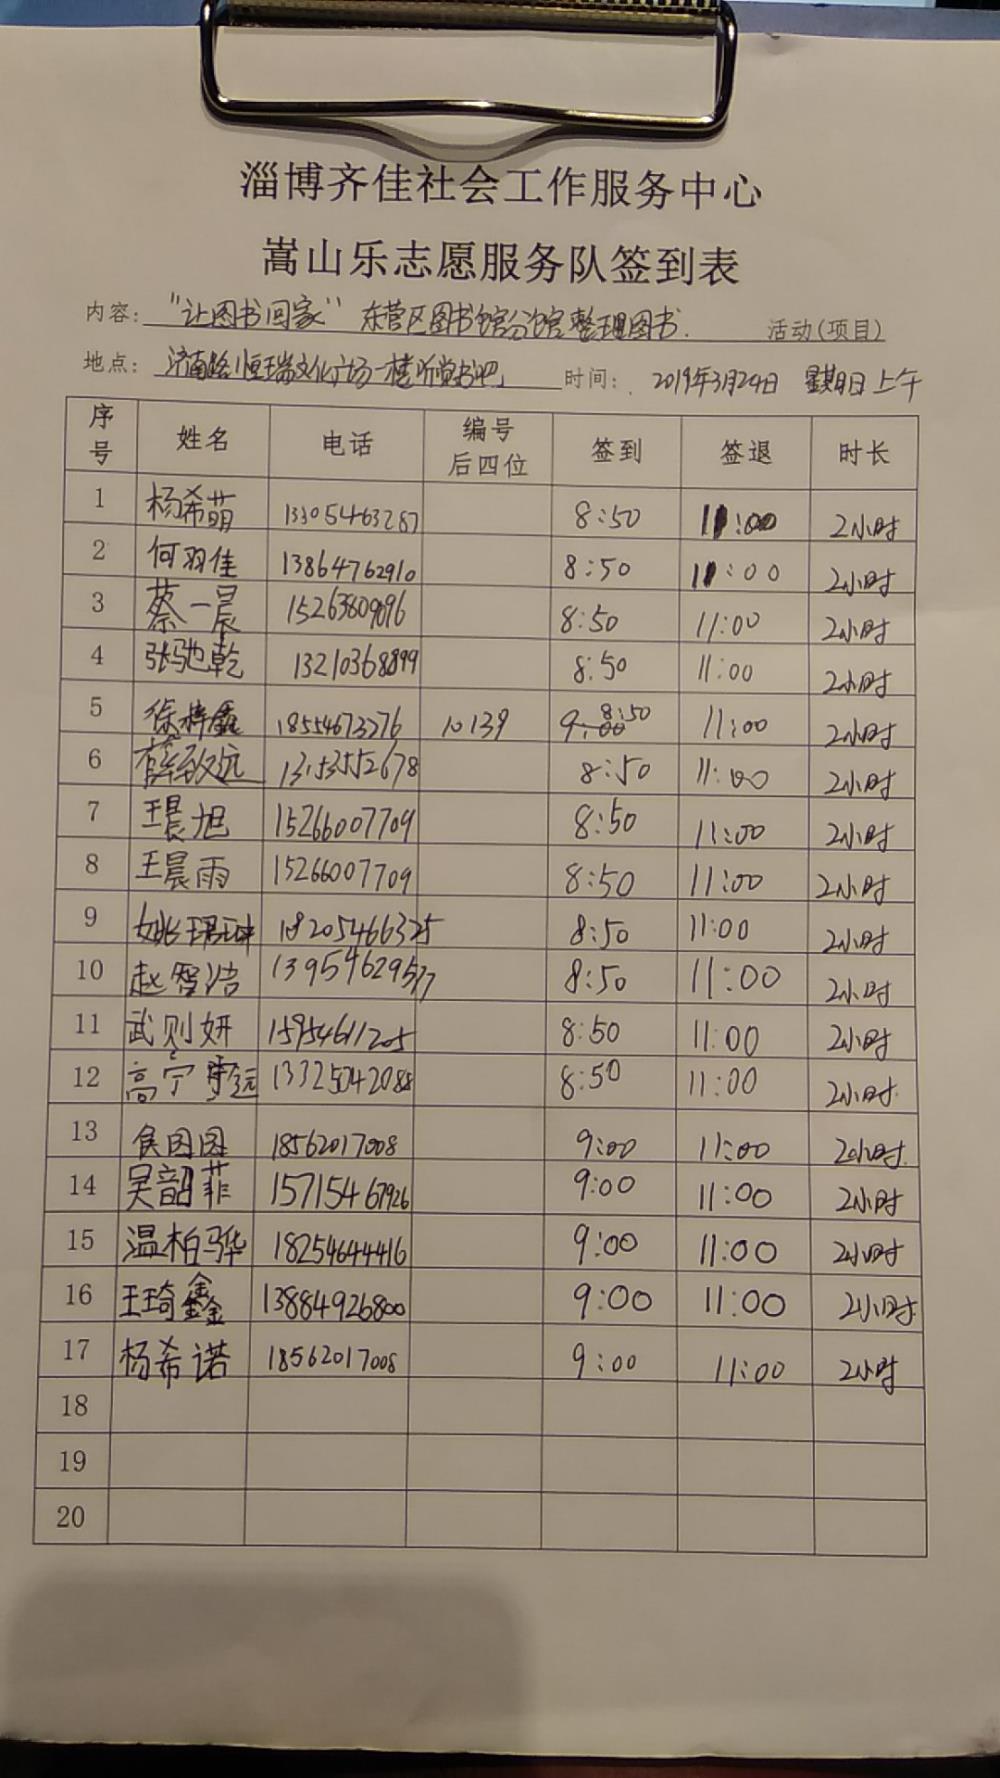 淄博齐佳社会工作服务中心
嵩山乐志愿服务队签到表
内容：“让图书回家” 东营区图书馆分馆整理图书. 活动(项目)
地点：济南路恒瑞文化广场一楼听觉书吧 时间：2019年3月24日 星期日上午
序号 姓名 电话 编号后四位 签到 签退 时长
1 杨希萌 13305463287 8:50 11:00 2小时
2 何羽佳 13864762910 8:50 11:00 2小时
3 蔡一晨 15263809096 8:50 11:00 2小时
4 张驰乾 13210368899 8:50 11:00 2小时
5 徐梓鑫 18554673276 10139 8:50 11:00 2小时
6 薛致远 13153552678 8:50 11:00 2小时
7 王晨旭 15266007709 8:50 11:00 2小时
8 王晨雨 15266007709 8:50 11:00 2小时
9 姚珺珅 18205466325 8:50 11:00 2小时
10 赵智浩 13954629577 8:50 11:00 2小时
11 武则妍 15954611205 8:50 11:00 2小时
12 高宁远 13325042088 8:50 11:00 2小时
13 团团 18562017008 9:00 11:00 2小时.
14 吴韶菲 15715467926 9:00 11:00 2小时
15 温柏骅 18254644416 9:00 11:00 2小时
16 王琦鑫 13884926800 9:00 11:00 2小时
17 杨希诺 18562017008 9:00 11:00 2小时
18
19
20